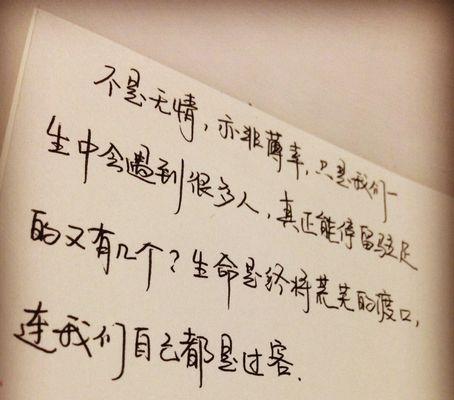 不是无情，亦非薄幸，只是我们一
生中会遇到很多人，真正能停留驻足
的又有几个？生命是终将荒芜的渡口，
连我们自己都是过客.